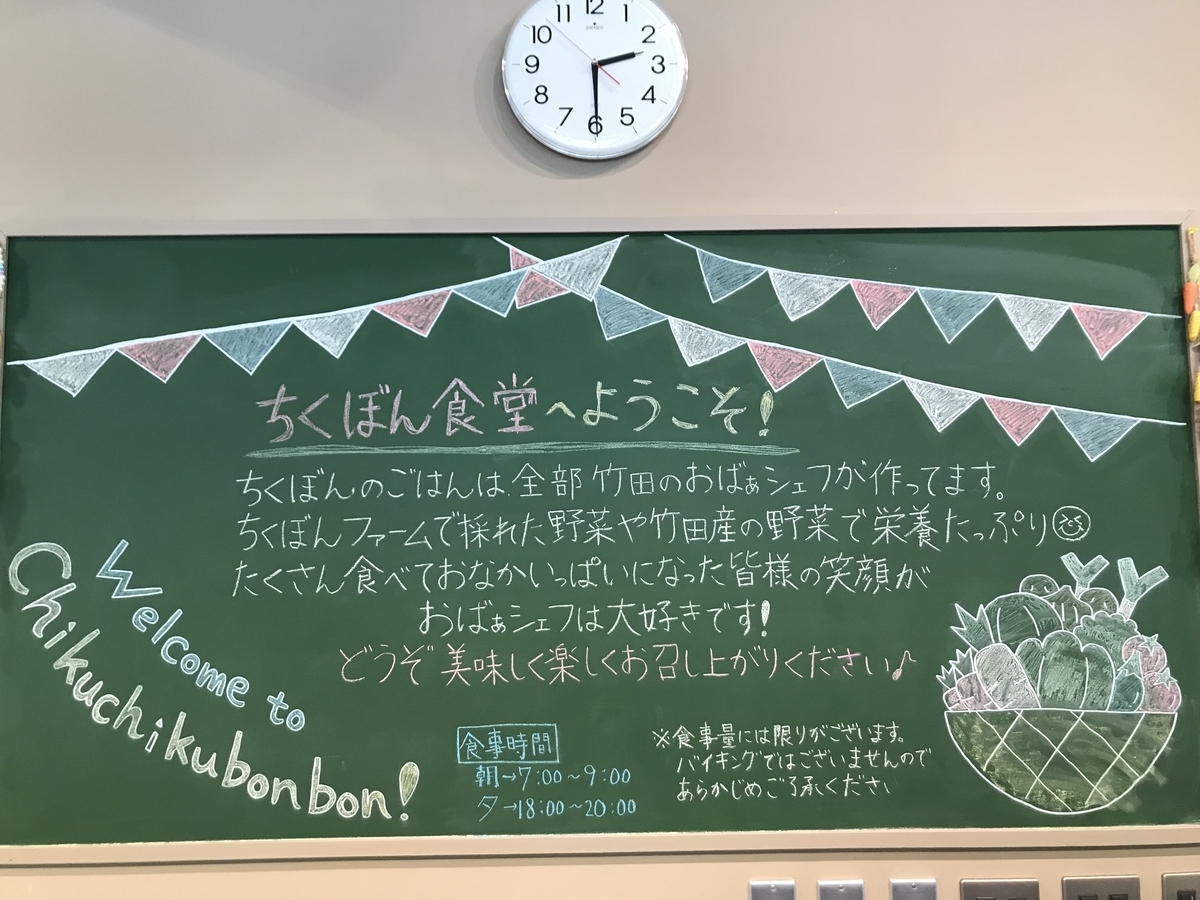 11 12 1
10 2
9 3
8 4
7 6 5
SEIKO
ちくぼん食堂へようこそ!
ちくぼんのごはんは、全部竹田のおばぁシェフが作ってます。
ちくぼんファームで採れた野菜や竹田産の野菜で栄養たっぷり
たくさん食べておなかいっぱいになった皆様の笑顔が
おばぁシェフは大好きです!
どうぞ美味しく楽しくお召し上がりください♪
Welcome to
Chikuchikubonbon!
食事時間
朝→7:00〜9:00
夕→18:00〜20:00
※食事量には限りがございます。
バイキングではございませんので
あらかじめご了承ください